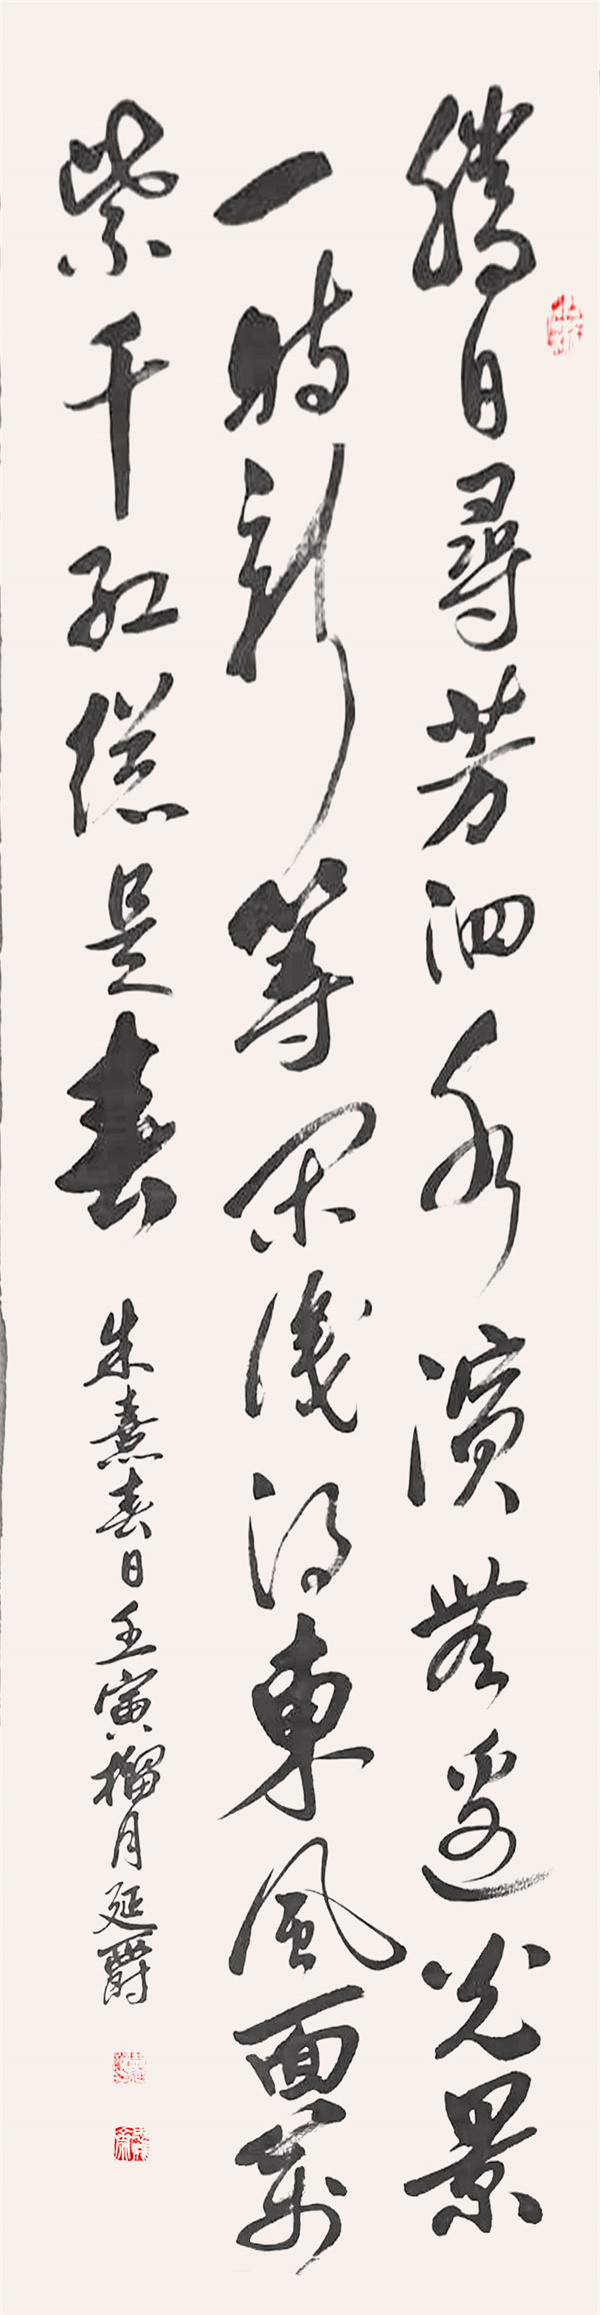 勝日尋芳泗水濱無邊光景
一時新等閑識得東風面萬
紫千紅總是春
朱熹春日壬寅榴月延爵